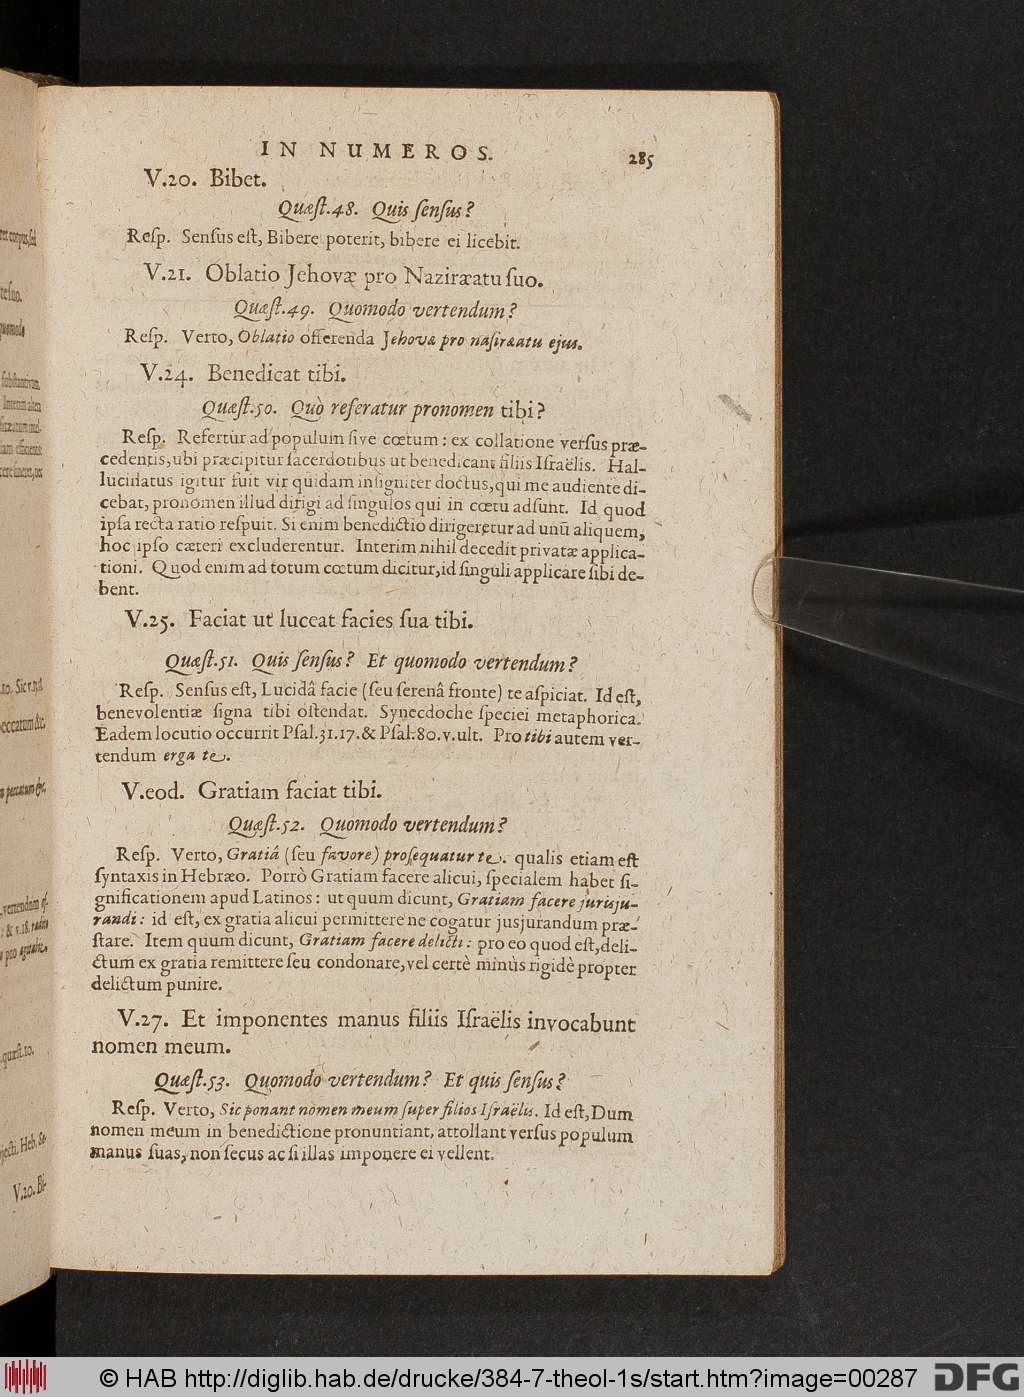 IN NUMEROS. 285
V.20. Bibet.
Quæſt.48. Quis ſenſus?
Reſp. Senſus eſt, Bibere poterit, bibere ei licebit.
V.21. Oblatio Jehovæ pro Naziræatu ſuo.
Quæſt.49. Quomodo vertendum?
Reſp. Verto, Oblatio offerenda Jehovæ pro naſiræatu ejus.
V.24. Benedicat tibi.
Quæſt.50. Quò referatur pronomen tibi?
Reſp. Refertur ad populum ſive cœtum: ex collatione verſus præ-
cedentis, ubi præcipitur ſacerdotibus ut benedicant filiis Iſraëlis. Hal-
lucinatus igitur fuit vir quidam inſigniter doctus, qui me audiente di-
cebat, pronomen illud dirigi ad ſingulos qui in cœtu adſunt. Id quod
ipſa recta ratio reſpuit. Si enim benedictio dirigeretur ad unũ aliquem,
hoc ipſo cæteri excluderentur. Interim nihil decedit privatæ applica-
tioni. Quod enim ad totum cœtum dicitur, id ſinguli applicare ſibi de-
bent.
V.25. Faciat ut luceat facies ſua tibi.
Quæſt.51. Quis ſenſus? Et quomodo vertendum?
Reſp. Senſus eſt, Lucidâ facie (ſeu ſerenâ fronte) te aſpiciat. Id eſt,
benevolentiæ ſigna tibi oſtendat. Synecdoche ſpeciei metaphorica.
Eadem locutio occurrit Pſal.31.17. & Pſal.80.v.ult. Pro tibi autem ver-
tendum erga te.
V.eod. Gratiam faciat tibi.
Quæſt.52. Quomodo vertendum?
Reſp. Verto, Gratiâ (ſeu favore) proſequatur te. qualis etiam eſt
ſyntaxis in Hebræo. Porrò Gratiam facere alicui, ſpecialem habet ſi-
gnificationem apud Latinos: ut quum dicunt, Gratiam facere jurisju-
randi: id eſt, ex gratia alicui permittere ne cogatur jusjurandum præ-
ſtare. Item quum dicunt, Gratiam facere delicti: pro eo quod eſt, deli-
ctum ex gratia remittere ſeu condonare, vel certè minùs rigidè propter
delictum punire.
V.27. Et imponentes manus filiis Iſraëlis invocabunt
nomen meum.
Quæſt.53. Quomodo vertendum? Et quis ſenſus?
Reſp. Verto, Sic ponant nomen meum ſuper filios Iſraëlis. Id eſt, Dum
nomen meum in benedictione pronuntiant, attollant verſus populum
manus ſuas, non ſecus ac ſi illas imponere ei vellent.
© HAB http://diglib.hab.de/drucke/384-7-theol-1s/start.htm?image=00287
DFG